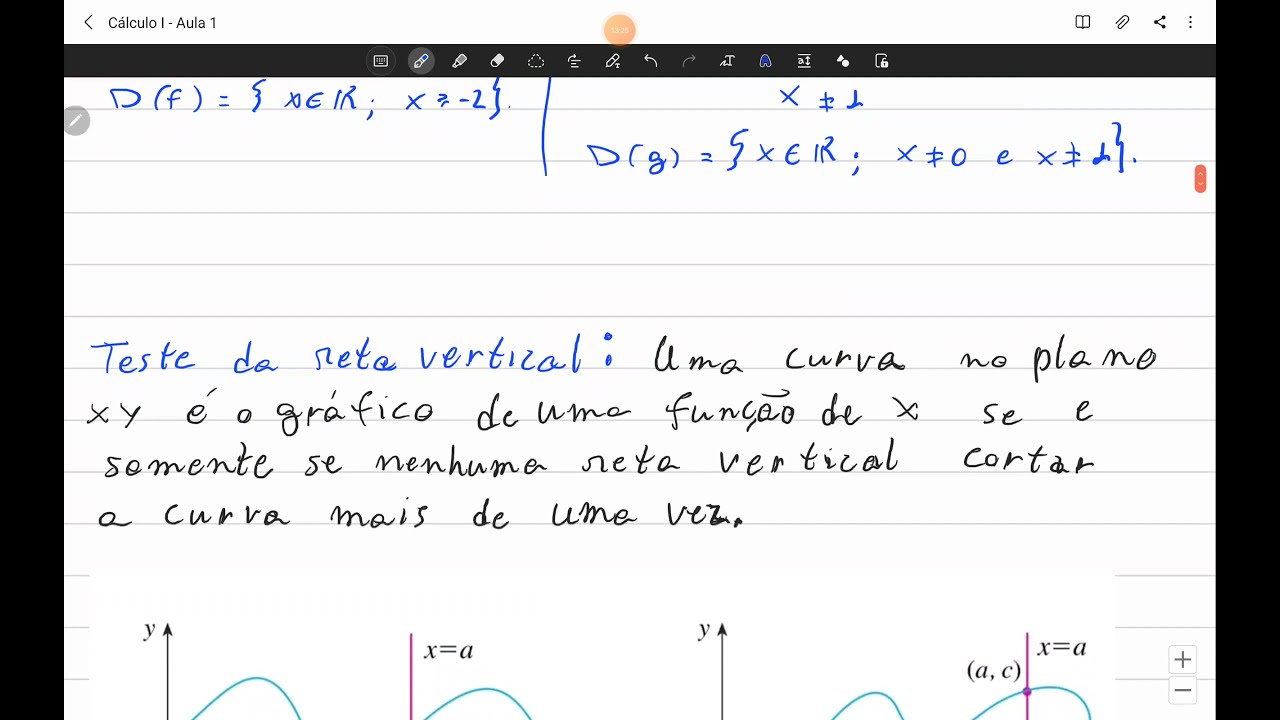 Cálculo I - Aula 1
13:25
D(f) = { x ∈ ℝ ; x ≥ -2}.
x ≠ 1
D(g) = { x ∈ ℝ ; x ≠ 0 e x ≠ 1}.
Teste da reta vertical: Uma curva no plano
xy é o gráfico de uma função de x se e
somente se nenhuma reta vertical cortar
a curva mais de uma vez.
y
x=a
y
x=a
(a, c)